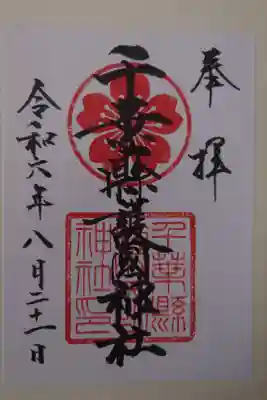 奉拝
千葉縣護國神社
千葉縣護國神社印
令和六年八月二十一日